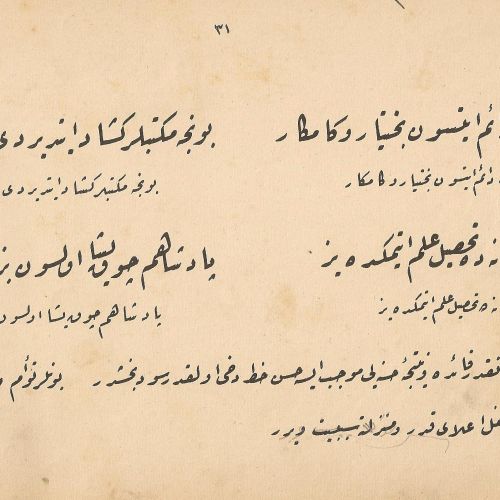 ٣١
دائم ایتسون بختیار و کامکار بونجه مکتبلر کشاد ایتدیردی
دائم ایتسون بختیار و کامکار بونجه مکتبلر کشاد ایتدیردی
تحصیل علم ایتمکده یز پادشاهم چوق یشا اولسون
تحصیل علم ایتمکده یز پادشاهم چوق یشا اولسون
فائده و نتیجهٔ حسنه یی موجب ایسه حسن خط دخی اولقدر سودبخشدر بونلر توأم
اعلای قدر و منزله سببیت ویرر